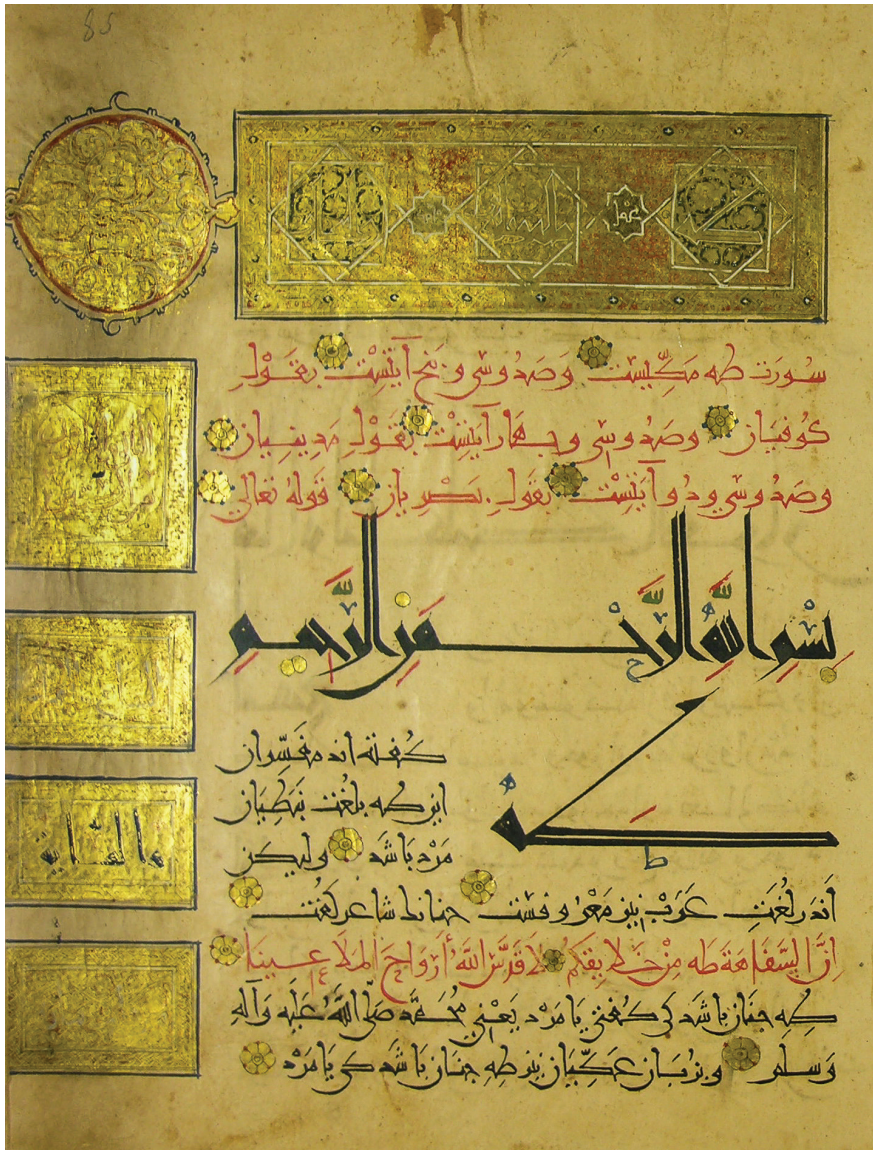 85
سُورَت طه مَكِّيست وَصَدُ وسي وبنج آيَتَسْت بقَوْلِ
كُوفيَان وصَدُ وسي وجهَار آيتَسْت بقَوْلِ مَدِينيَان
وصَدُ وسي ودُو آيَتَسْت بقَولِ بَصْريَان قَولهُ تعالى
بِسْمِ اللهِ الرَّحْمَنِ الرَّحِيمِ
طه
كُفته اند مفَسِّران
اين كه بلُغت نبَطيَان
مَرْد بَاشَد وليكن
اَندَر لُغَتِ عَرَبْ نيز مَعْرُوفست جنانك شاعر كفت
اِنَّ السَّفَاهَةَ طه مِنْ خَلايِقكُمْ لاَ قَدَّسَ اللهُ أرْوَاحَ المَلاَعِينَا
كِه جنَان بَاشَد كي كُفتي يَا مَرْد يَعْني مُحَمَّد صَلّى اللهُ عَلَيْهِ وَآلِهِ
وَسلَّم وبزبَان عَكِّيَان نيز طه جنَان بَاشَد كي يَا مَرْد